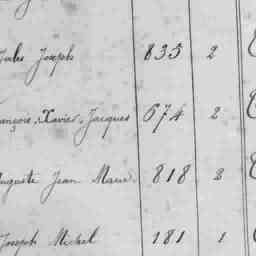 Jules Joseph 835 2
François, Xavier, Jacques 674 2
Auguste Jean Marie 818 2
Joseph Michel 181 1